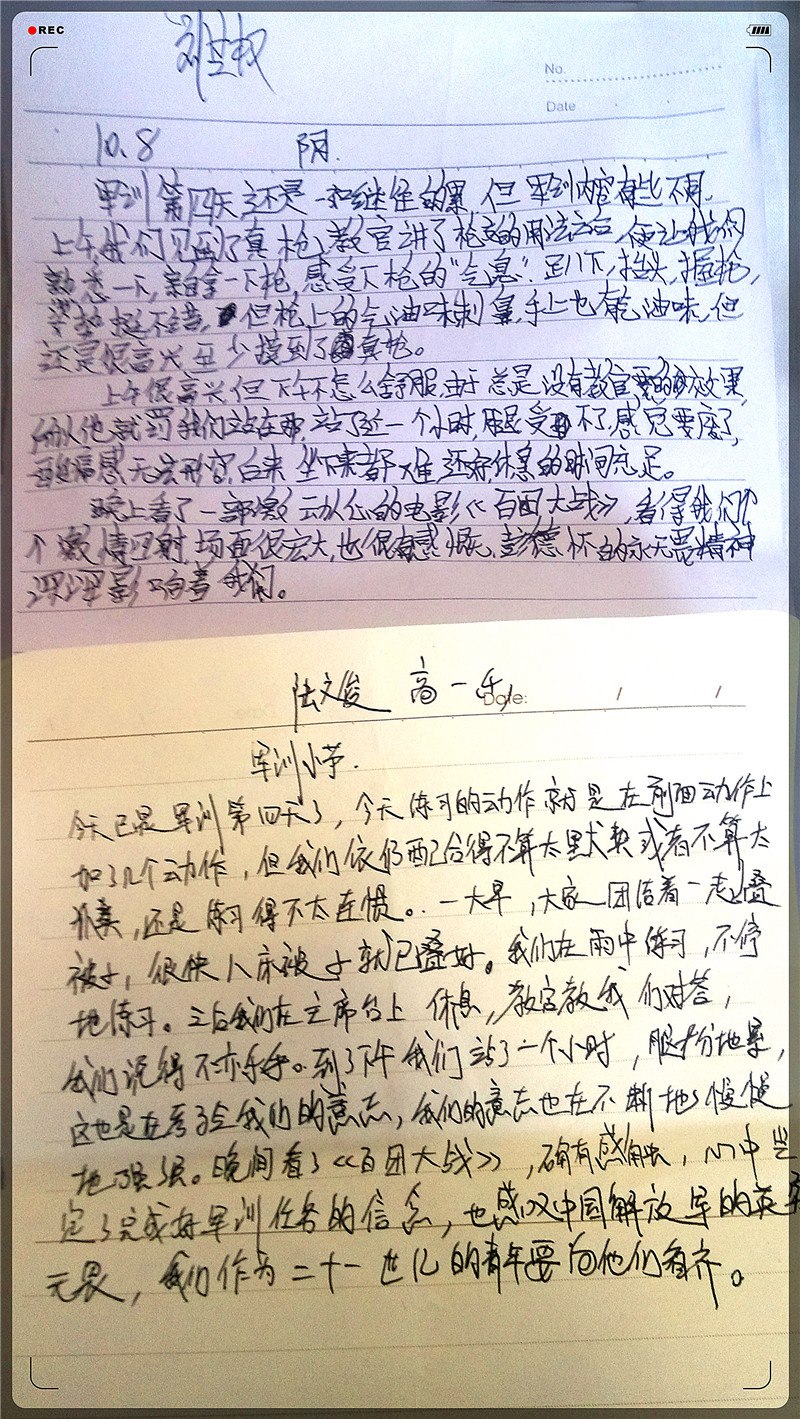 REC
No.
Date
10.8 阴.
军训第四天还是一如继往的累,但军训内容有些不同.
上午,我们见到了真枪,教官讲了枪的用法之后,便让我们
熟悉一下,亲自拿一下枪,感受下枪的“气息”.趴下,抬头,握枪,
姿势挺不错,但枪上的气油味刺鼻,手上也有乾油味,但
还是很高兴至少摸到了真枪。
上午很高兴,但下午不怎么舒服,由于总是没有教官要的效果,
所以他就罚我们站在那,站了近一个小时,腿受不了,感觉要废了,
痛感无法形容,后来坐下来都难,还好休息的时间充足。
晚上看了一部激动人心的电影《百团大战》,看得我们个
个激情四射,场面很宏大,也很有感慨,彭德怀的永无畏精神
深深影响着我们。
陆文俊 高一
Date: / /
军训小节.
今天已是军训第四天了,今天练习的动作就是在前面动作上
加了几个动作,但我们依仍配合得不算太默契或者不算太
,还是练习得不太连惯。一大早,大家团结着一起叠
被子,很快八床被子就已叠好。我们在雨中练习,不停
地练习。之后我们在主席台上休息,教官教我们对答,
我们说得不亦乎乎。到了下午我们站了一个小时,腿十分地累,
这也是在考验我们的意志,我们的意志也在不断地慢慢
地强。晚间看了《百团大战》,确有感触,心中坚
定了完成好军训任务的信念,也感叹中国解放军的英勇
无畏,我们作为二十一世纪的青年要向他们看齐。